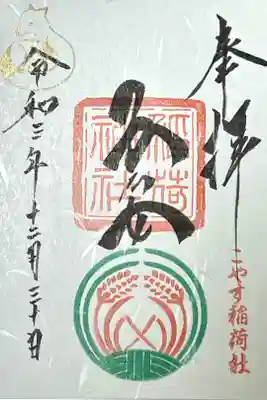 奉拝
こやす稲荷社
子安
稲荷
神社
令和三年十二月三十日